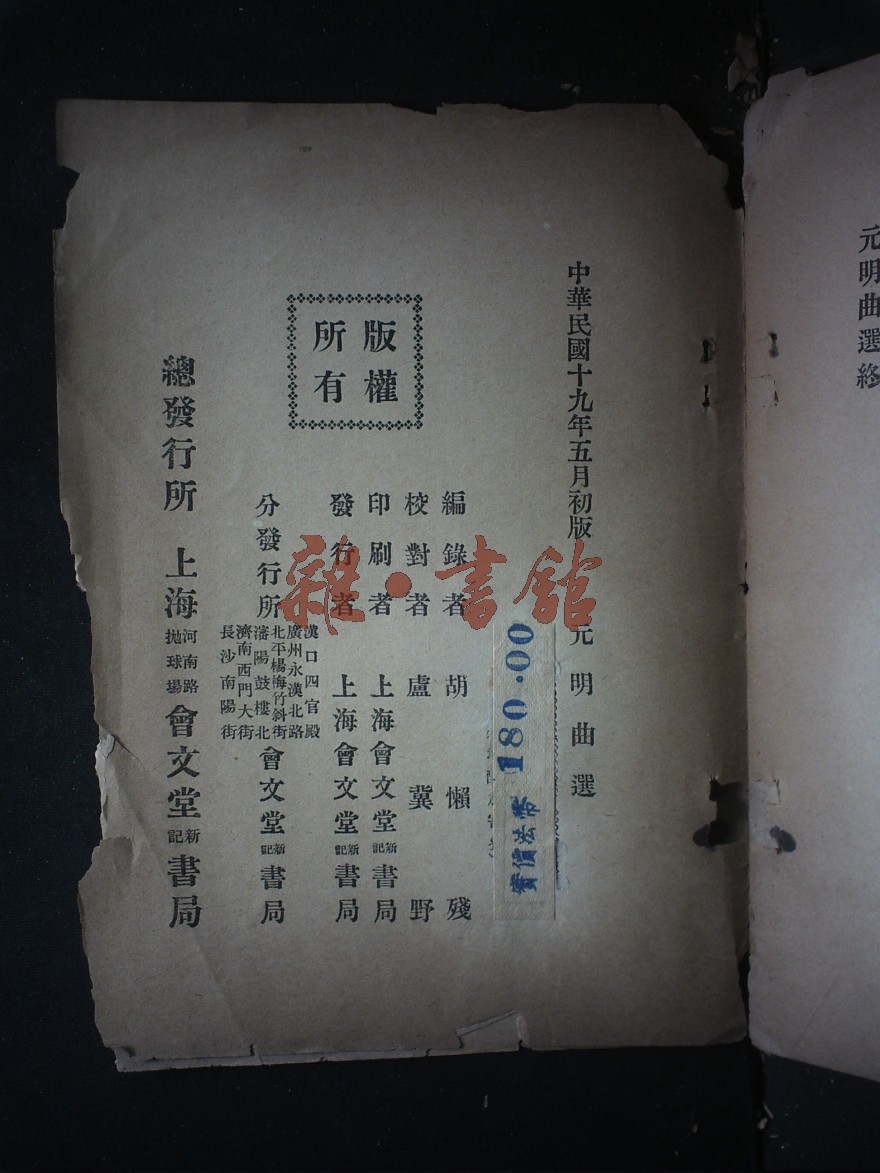 元明曲選終
中華民國十九年五月初版
元明曲選
實價法幣 180.00
編錄者 胡懶殘
校對者 盧冀野
印刷者 上海會文堂新記書局
發行者 上海會文堂新記書局
版權
所有
分發行所
漢口四官殿
廣州永漢北路
北平楊梅竹斜街
瀋陽鼓樓北
濟南西門大街
長沙南陽街
會文堂新記書局
總發行所 上海河南路拋球場會文堂新記書局
雜·書館